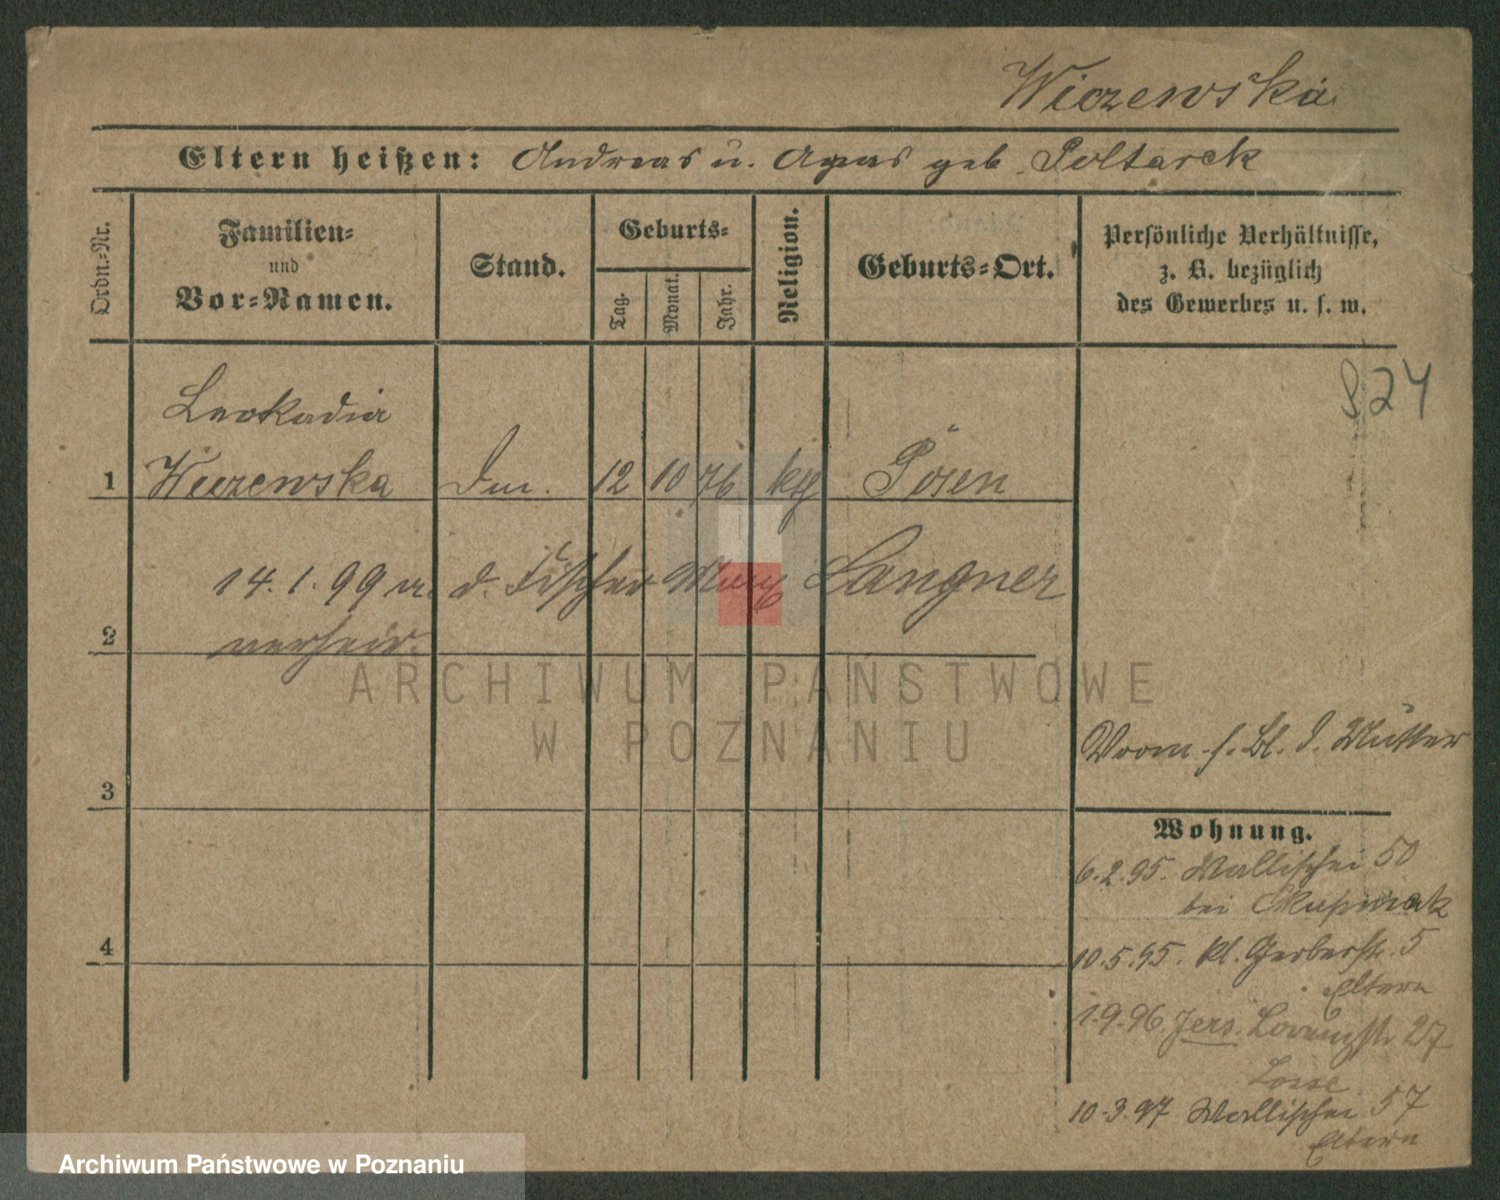 Wiczewska
Eltern heißen: Andreas u. Agnes geb. Poltarek
Ordn.-Nr.
Familien-
und
Vor-Namen.
Stand.
Geburts-
Tag.
Monat.
Jahr.
Religion.
Geburts-Ort.
Persönliche Verhältnisse,
z. B. bezüglich
des Gewerbes u. s. w.
824
Leokadia
1 Wiczewska 12 10 76 Posen
14.1.99 m. d. Fischer Langner
2 verheir.
ARCHIWUM PAŃSTWOWE
W POZNANIU
Vorm. s. Bl. d. Mutter
3
Wohnung.
6.2.95. Wallischei 50
bei
4
10.5.95. kl. Gerberstr. 5
Eltern
1.9.96. Jers. 27
Losse
10.3.97 Wallischei 57
Eltern
Archiwum Państwowe w Poznaniu